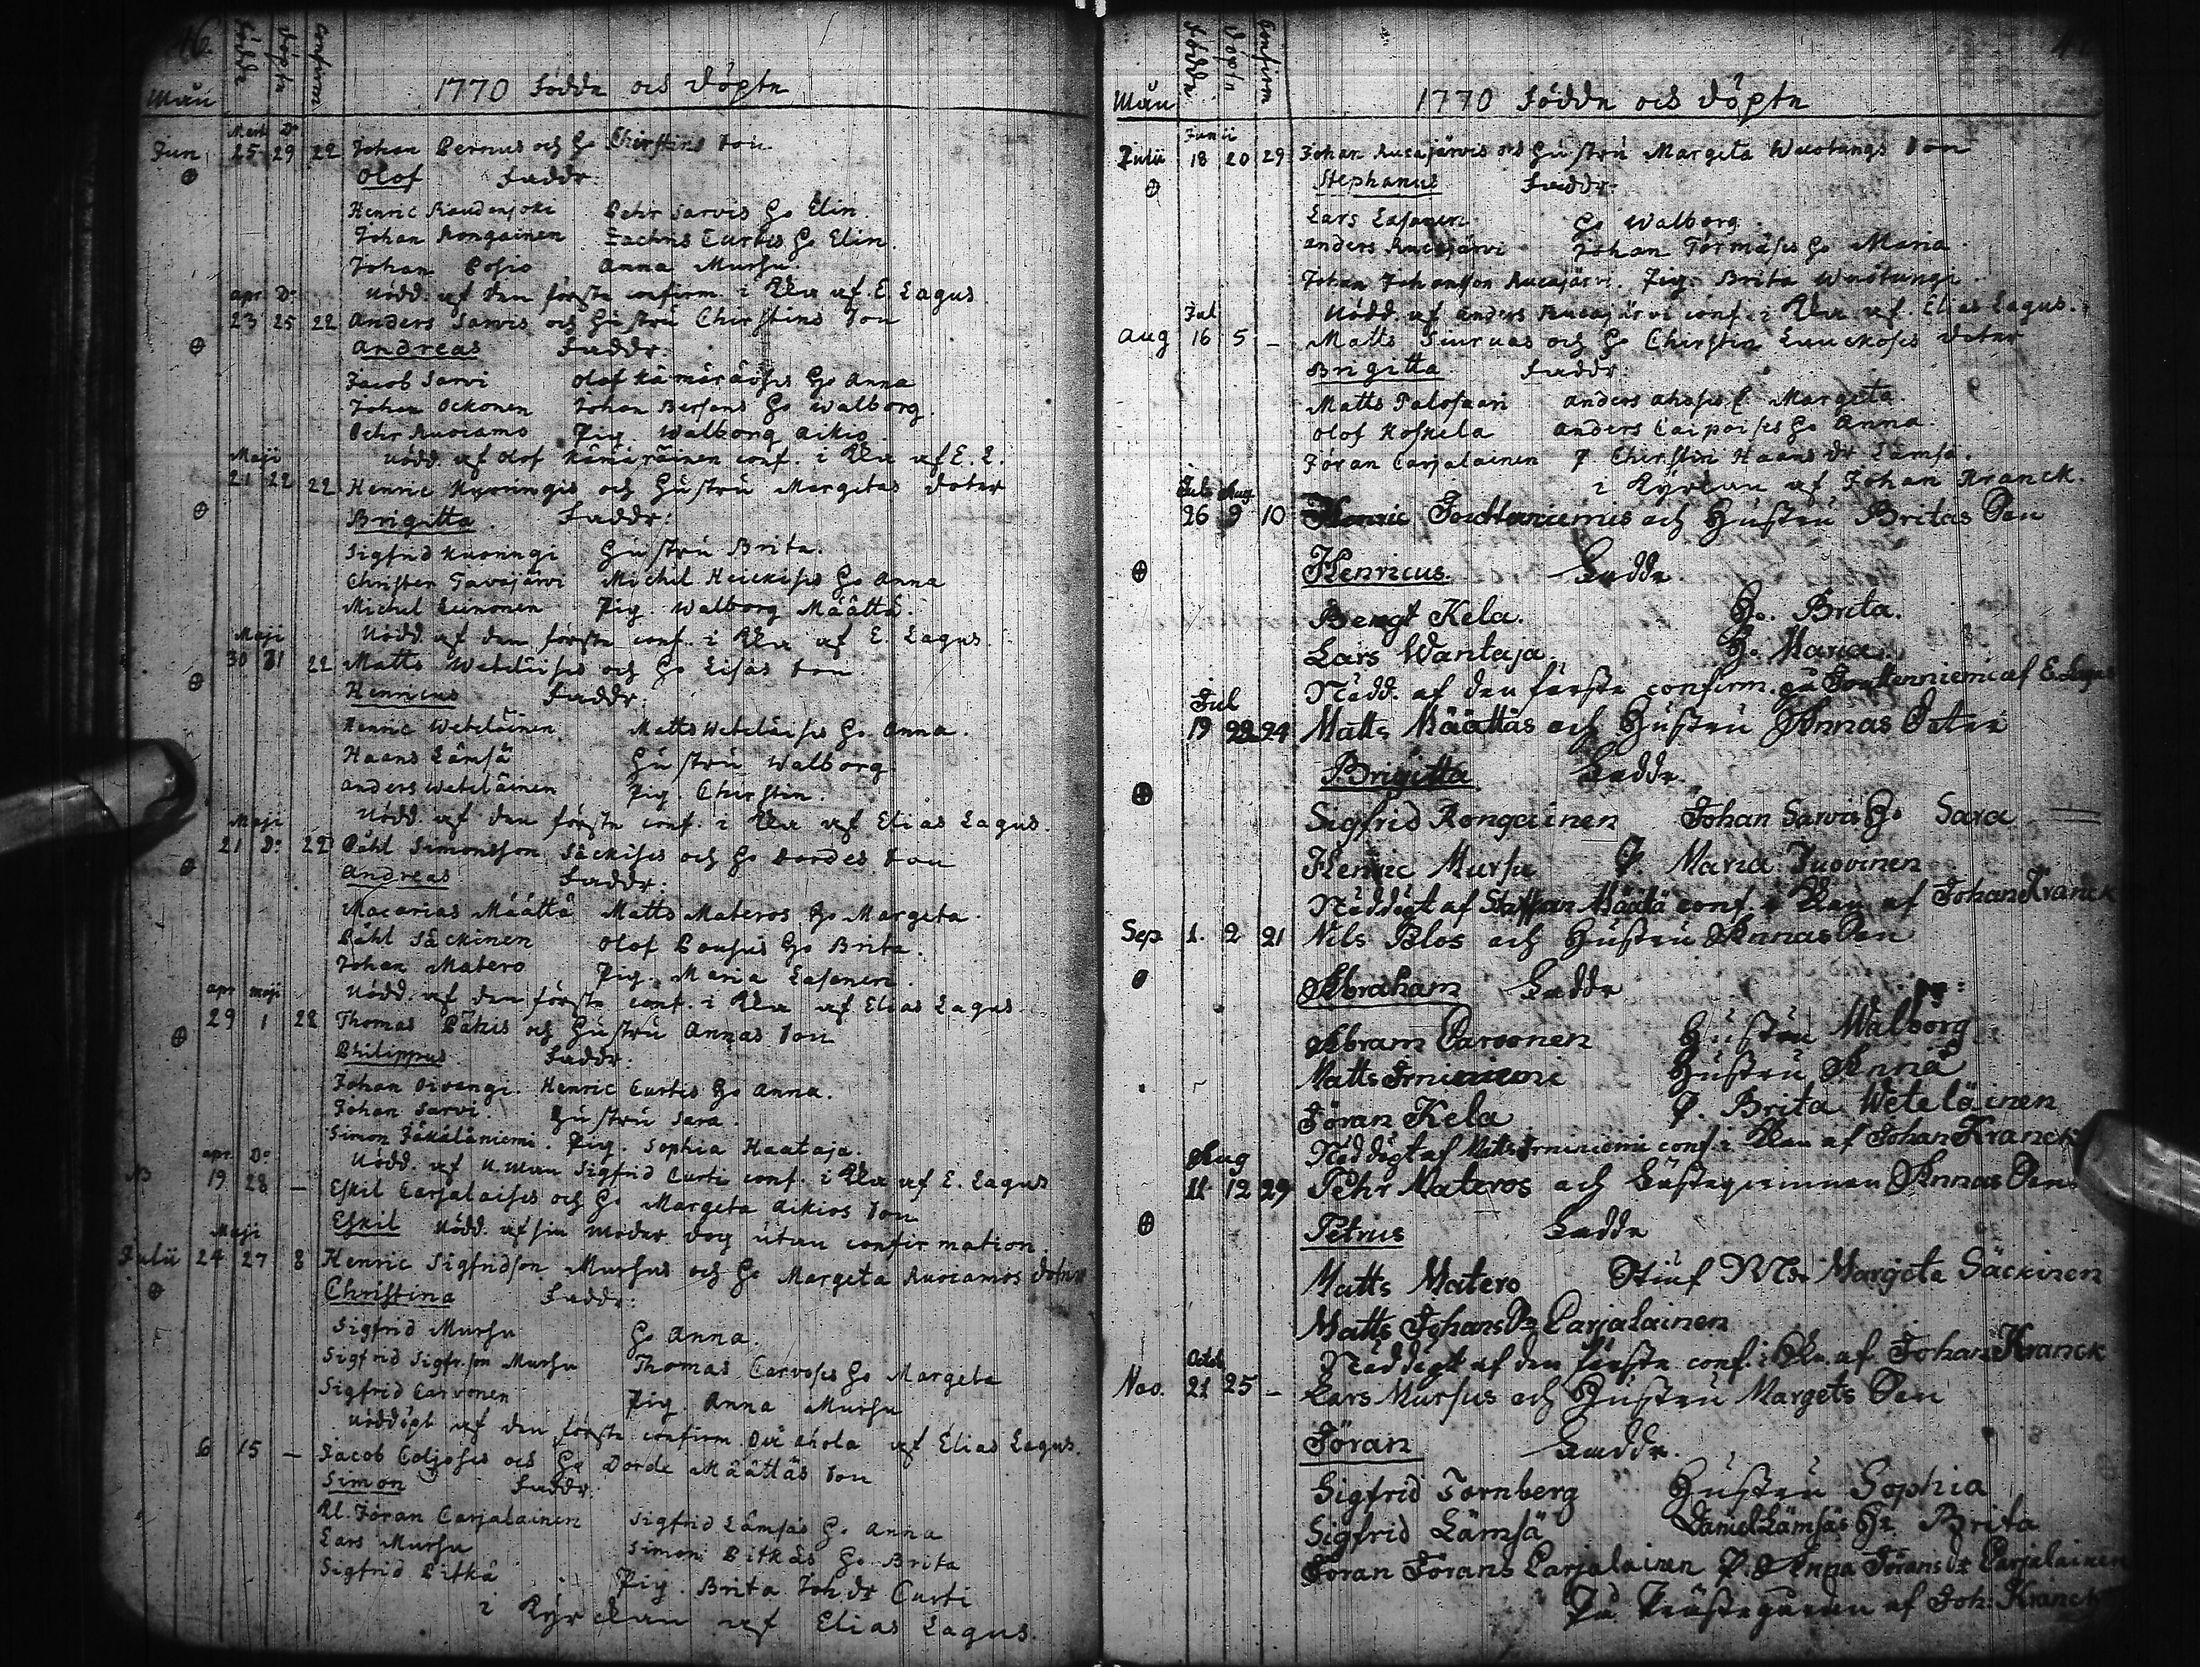 46.
Födde döpte Confirm
Mån 1770 Födde och döpte
Mart Do
Jun. 25 29 22 Johan Pernus och Ho Chirstins son
Olof Faddr:
Henric Raudanjoki Pehr Sarvis Ho Elin.
Johan Rongainen Zachris Curtis Ho Elin.
Johan Posio Anna Mursu.
Nödd. af den förste confirm. i Kkn af E. Lagus
apr Do
23 25 22 Anders Sarvis och Hustru Chirstins son
Andreas Faddr:
Jacob Sarvi Olof Kämäräises Ho Anna
Johan Ockonen Johan Ho Walborg
Pehr Ruocamo Pig. Walborg Aikio.
Nödd. af Olof Kämäräinen conf. i Kkn af E. L.
Maji
21 22 22 Henric och Hustru Margetas doter
Brigitta. Faddr:
Sigfrid Hustru Brita.
Christer Tavajärvi Michil Heickises Ho Anna
Michel Leinonen Pig. Walborg Määttä.
Nödd. af den förste conf. i Kkn af E. Lagus.
Maji
30 31 22 Matts Weteläises och Ho Lisas son
Henricus Faddr:
Henric Weteläinen Matts Weteläises Ho Anna.
Haans Lämsä Hustru Walborg
Anders Weteläinen Pig. Chirstin.
Nödd. af den förste conf. i Kkn af Elias Lagus.
Maji
21 Do 22 Påhl Simonsson Säckises och Ho Dordes son
Andreas Faddr:
Macarias Määttä Matts Materos Ho Margeta.
Påhl Säckinen Olof Ho Brita.
Johan Matero Pig. Maria Lasanen.
Nödd. af den förste conf. i Kkn af Elias Lagus.
apr maji
29 1 22 Thomas Pätäis och Hustru Annas son
Philippus Faddr:
Johan Oivangi. Henric Curtis Ho Anna.
Johan Sarvi. Hustru Sara.
Simon Jäkäläniemi. Pig. Sophia Haataja.
Nödd. af Sigfrid Curti conf. i Kkn af E. Lagus
apr. Do
19 28 – Eskil Carjalaises och Ho Margeta Aikios son
Eskil Nödd. af sin moder dog utan confirmation.
Maji
Julii 24 27 8 Henric Sigfridson Mursus och Ho Margeta Ruocamos doter
Christina Faddr:
Sigfrid Mursu Ho Anna.
Sigfrid Sigfr.son Mursu Thomas Carvoses Ho Margeta
Sigfrid Carvonen Pig. Anna Mursu
Nöddöpt af den förste confirm. på Ahola af Elias Lagus.
6 15 – Jacob Coljoses och Ho Dorde Määttäs son
Simon Faddr:
Kl. Jöran Carjalainen Sigfrid Lämsäs Ho Anna
Lars Mursu Simon Pitkäs Ho Brita
Sigfrid Pitkä Pig. Brita Joh. dr Curti
i Kyrckan af Elias Lagus.
Födde döpte Confirm
Mån 1770 Födde och döpte
Junii
Julii 18 20 29 Johan Rucajärvis och Hustru Margeta Wuotungs son
Stephanus Faddr:
Lars Lasanen Ho Walborg
Anders Rucajärvi Johan Törmäses Ho Maria.
Johan Johansson Rucajärvi. Pig. Brita Wuotungi
Nödd. af Anders Rucajärvi conf. i Kkn af Elias Lagus.
Jul
Aug 16 5 – Matts Siuruas och Ho Chirstin Luuckoses doter
Brigitta Faddr:
Matts Palosaari Anders Ahoses Margeta.
Olof Koskela Anders Caipaises Ho Anna.
Jöran Carjalainen P Chirstin Haans Dr Lämsä.
i Kyrkan af Johan Kranck.
Jul Aug
26 9 10 Henric och Hustru Britas Son
Henricus. Faddr.
Bengt Kela. Ho. Brita.
Lars Wantaja. H. Maria.
Nödd. af den förste confirm. på af E. Lagus
Jul
19 22 24 Matts Määttäs och Hustru Annas Doter
Brigitta Faddr.
Sigfrid Rongainen Johan Sarvis Ho Sara
Henric Mursu P. Maria Juovinen
Nöddöpt af Staffan Määttä conf. i Kkn af Johan Kranck
Sep 1. 2 21 Nils Polos och Hustru Annas Son
Abraham Faddr
Abram Parvonen Hustru Walborg
Matts Irniniemi Hustru Anna
Jöran Kela P. Brita Weteläinen
Nöddöpt af Matts Irniniemi conf. i Kkn af Johan Kranck
Aug
11 12 29 Pehr Materos och Annas Son
Petrus Faddr
Matts Matero Stiuf Mdr Margeta Säckinen
Matts Johans Sn Carjalainen
Nöddöpt af den förste conf. i Kkn. af Johan Kranck
Octob
Nov. 21 25 – Lars Mursus och Hustru Margets Son
Jöran Faddr.
Sigfrid Tornberg Hustru Sophia
Sigfrid Lämsä Daniel Lämsäs Ho Brita
Jöran Jörans Carjalainen P. Anna Jörans dr Carjalainen
På Prästegården af Joh. Kranck